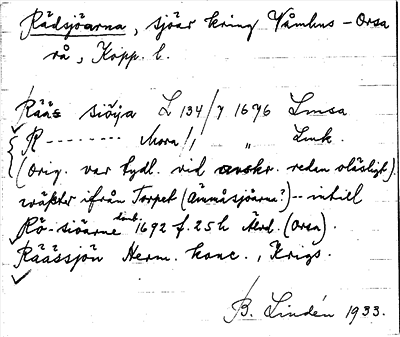 Rädsjöarna, sjöar kring Våmhus - Orsa
rå, Kopp. l.
Rääs siöya L 134/7 1696 Lmsa
R -------- Mora /, „ Link.
(Orig. var tydl. vid avskr. redan oläsligt).
wäster ifrån Torpet (Ämmåsjöarne?) -- intill
Rö-siöarne 1692 f. 25 h Älvd. (Orsa).
Räässjön Herm. konc., Krigs.
B. Lindén 1933.